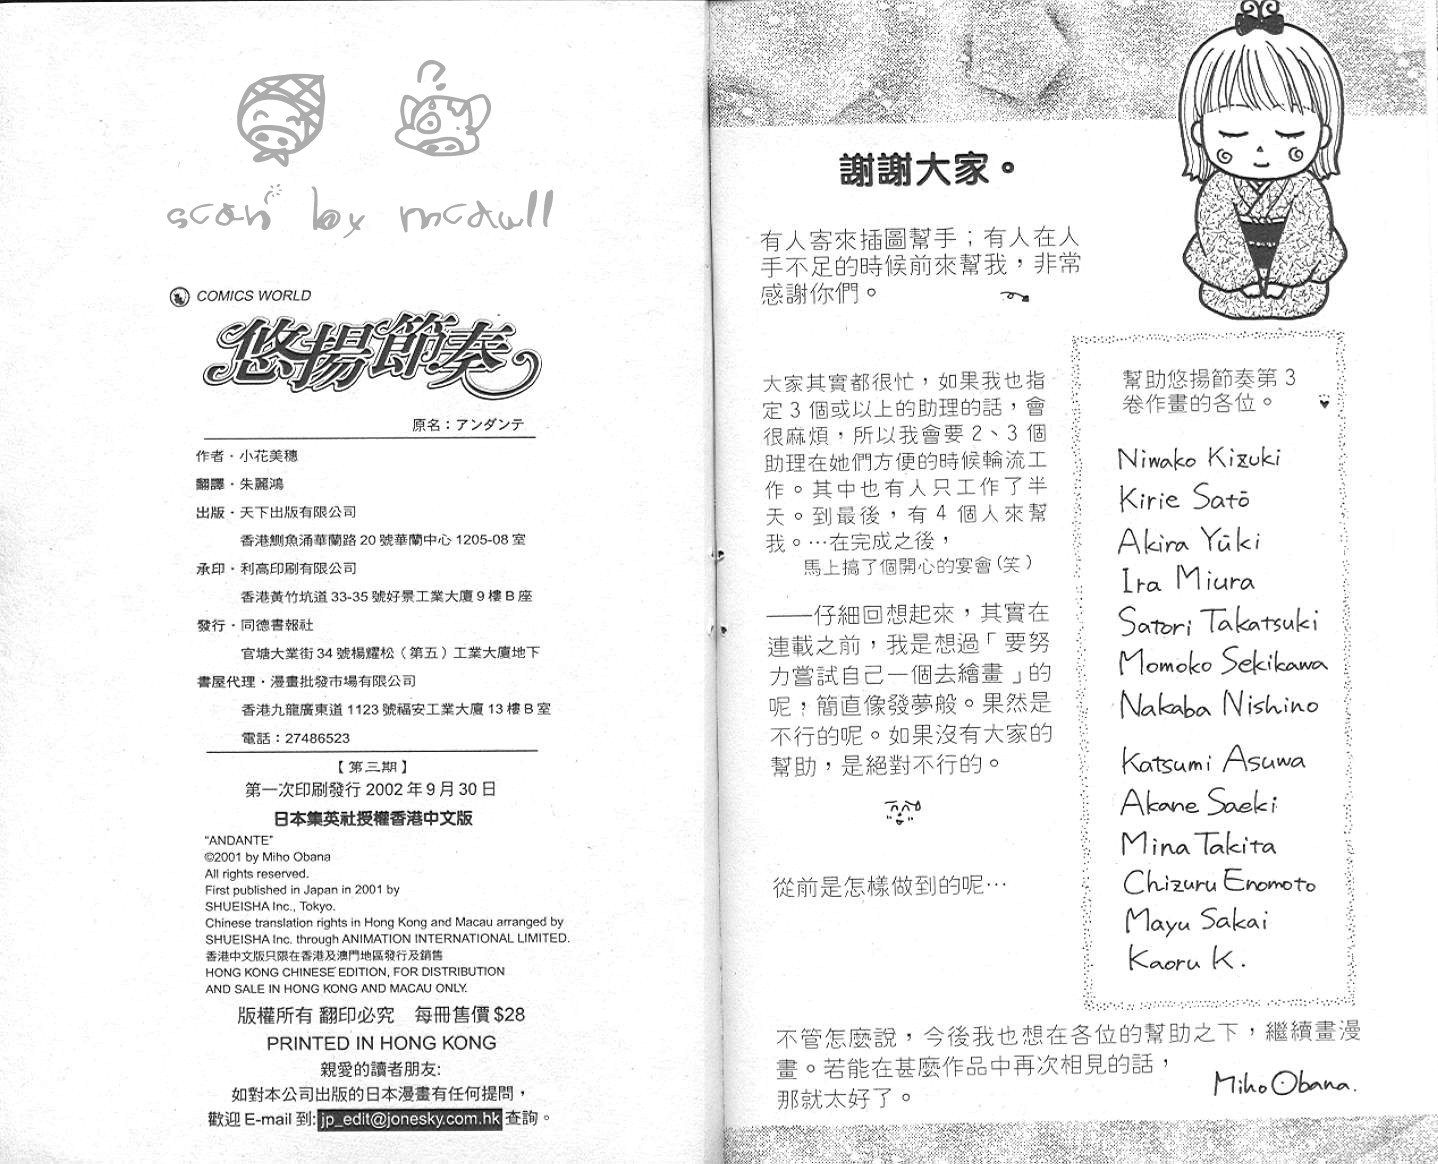 scan by mcdull
COMICS WORLD
悠揚節奏
原名：アンダンテ
作者・小花美穗
翻譯・朱麗鴻
出版・天下出版有限公司
香港鰂魚涌華蘭路 20 號華蘭中心 1205-08 室
承印・利高印刷有限公司
香港黃竹坑道 33-35 號好景工業大廈 9 樓 B 座
發行・同德書報社
官塘大業街 34 號楊耀松（第五）工業大廈地下
書屋代理・漫畫批發市場有限公司
香港九龍廣東道 1123 號福安工業大廈 13 樓 B 室
電話：27486523
【第三期】
第一次印刷發行 2002 年 9 月 30 日
日本集英社授權香港中文版
"ANDANTE"
©2001 by Miho Obana
All rights reserved.
First published in Japan in 2001 by
SHUEISHA Inc., Tokyo.
Chinese translation rights in Hong Kong and Macau arranged by
SHUEISHA Inc. through ANIMATION INTERNATIONAL LIMITED.
香港中文版只限在香港及澳門地區發行及銷售
HONG KONG CHINESE EDITION, FOR DISTRIBUTION
AND SALE IN HONG KONG AND MACAU ONLY.
版權所有 翻印必究　每冊售價 $28
PRINTED IN HONG KONG
親愛的讀者朋友:
如對本公司出版的日本漫畫有任何提問，
歡迎 E-mail 到: jp_edit@jonesky.com.hk 查詢。
謝謝大家。
有人寄來插圖幫手；有人在人
手不足的時候前來幫我，非常
感謝你們。
大家其實都很忙，如果我也指
定 3 個或以上的助理的話，會
很麻煩，所以我會要 2、3 個
助理在她們方便的時候輪流工
作。其中也有人只工作了半
天。到最後，有 4 個人來幫
我。…在完成之後，
馬上搞了個開心的宴會(笑)
——仔細回想起來，其實在
連載之前，我是想過「要努
力嘗試自己一個去繪畫」的
呢，簡直像發夢般。果然是
不行的呢。如果沒有大家的
幫助，是絕對不行的。
從前是怎樣做到的呢…
幫助悠揚節奏第 3
卷作畫的各位。
Niwako Kizuki
Kirie Satō
Akira Yūki
Ira Miura
Satori Takatsuki
Momoko Sekikawa
Nakaba Nishino
Katsumi Asuwa
Akane Saeki
Mina Takita
Chizuru Enomoto
Mayu Sakai
Kaoru K.
不管怎麼說，今後我也想在各位的幫助之下，繼續畫漫
畫。若能在甚麼作品中再次相見的話，
那就太好了。
Miho Obana.